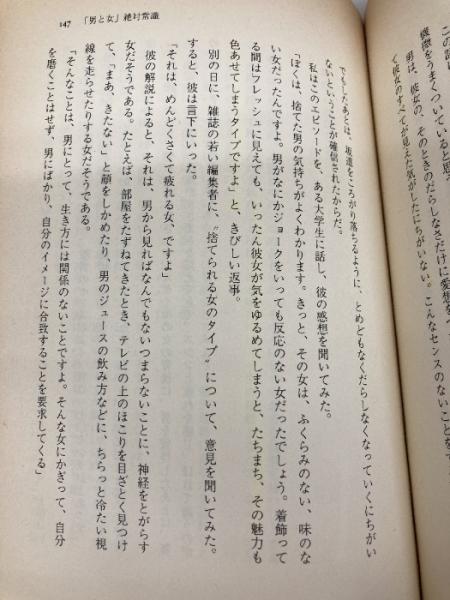 この語
機微をうまくついていると思う。
彼女の、そのときのだらしなさだけに愛想を
く彼女のすべてが見えた気がしたにちがいない。こんなセンスのないことを
147 「男と女」絶対常識
でもしたあとは、坂道をころがり落ちるように、とめどもなくだらしなくなっていくにちがい
ないということが確信されたからだ。
私はこのエピソードを、ある大学生に話し、彼の感想を聞いてみた。
「ぼくは、捨てた男の気持ちがよくわかります。きっと、その女は、ふくらみのない、味のな
い女だったんですよ。男がなにかジョークをいっても反応のない女だったでしょう。着飾って
る間はフレッシュに見えても、いったん彼女が気をゆるめてしまうと、たちまち、その魅力も
色あせてしまうタイプですよ」と、きびしい返事。
別の日に、雑誌の若い編集者に、〝捨てられる女のタイプ〟について、意見を聞いてみた。
すると、彼は言下にいった。
「それは、めんどくさくて疲れる女、ですよ」
彼の解説によると、それは、男から見ればなんでもないつまらないことに、神経をとがらす
女だそうである。たとえば、部屋をたずねてきたとき、テレビの上のほこりを目ざとく見つけ
て、「まあ、きたない」と顔をしかめたり、男のジュースの飲み方などに、ちらっと冷たい視
線を走らせたりする女だそうである。
「そんなことは、男にとって、生き方には関係のないことですよ。そんな女にかぎって、自分
を磨くことはせず、男にばかり、自分のイメージに合致することを要求してくる」